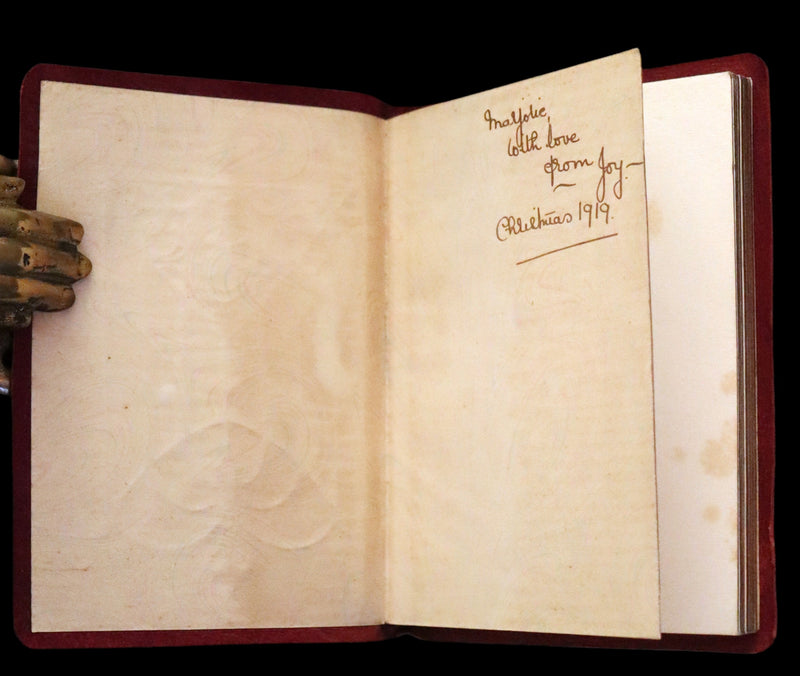 Marjorie,
with love
from Joy –
Christmas 1919.